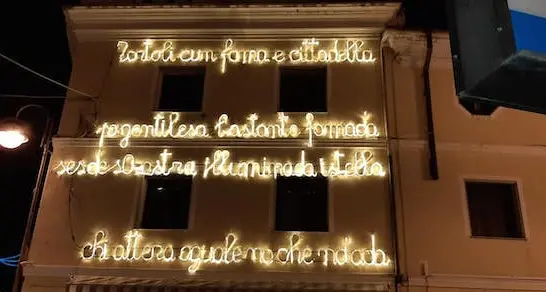 Tortoli cun fama e cittadella
pogentilesa bastante fomada
ses de s'Ozastra illuminada istella
chi attera aguale no che nd'ada